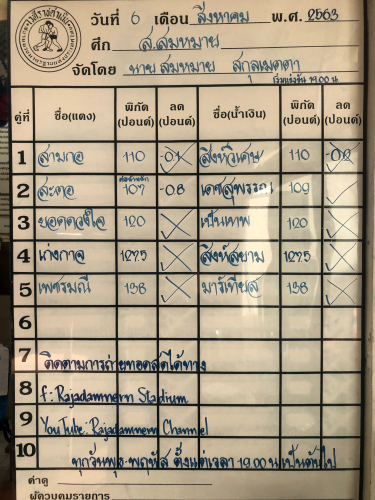 วันที่ 6 เดือน สิงหาคม พ.ศ. 2563
ศึก ส.สมหมาย
จัดโดย นาย สมหมาย สกุลเมตตา
เริ่มแข่งขัน 19.00 น
คู่ที่ ชื่อ(แดง) พิกัด (ปอนด์) ลด (ปอนด์) ชื่อ(น้ำเงิน) พิกัด (ปอนด์) ลด (ปอนด์)
1 สามกอ 110 สิงห์วิเศษ 110
2 สะตอ 107 -08 เดชสุพรรณ 109
3 ยอดดวงใจ 120 เป็นเทพ 120
4 เก่งกาจ 127.5 สิงห์สยาม 127.5
5 เพชรมณี 138 มาร์เทียส 138
6
7 ติดตามการถ่ายทอดสดได้ทาง
8 f: Rajadamnern Stadium
9 YouTube: Rajadamnern Channel
10 ทุกวันพุธ-พฤหัส ตั้งแต่เวลา 19.00 น เป็นต้นไป
ค่าดู
ผู้ควบคุมรายการ